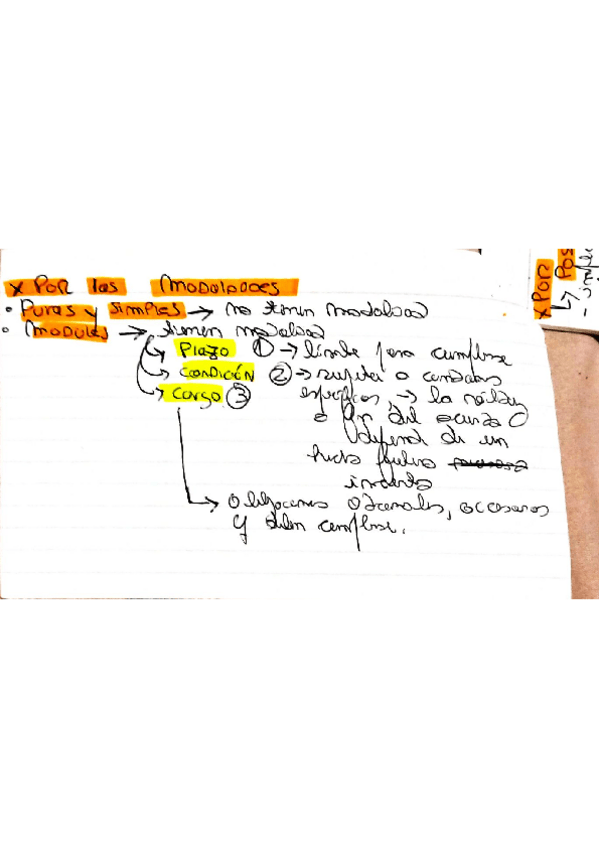 x Por las Modalidades
• Puras y simples → no tienen modalidad
• Modales → tienen modalidad
↳ Plazo ① → límite para cumplirse
↳ Condición ② → sujeta a
↳ Cargo ③ específicos, → la validez
o fin del
depende de un
hecho futuro
incierto
↳ Obligaciones, accesorias
y deben cumplirse.
x Por
Pos